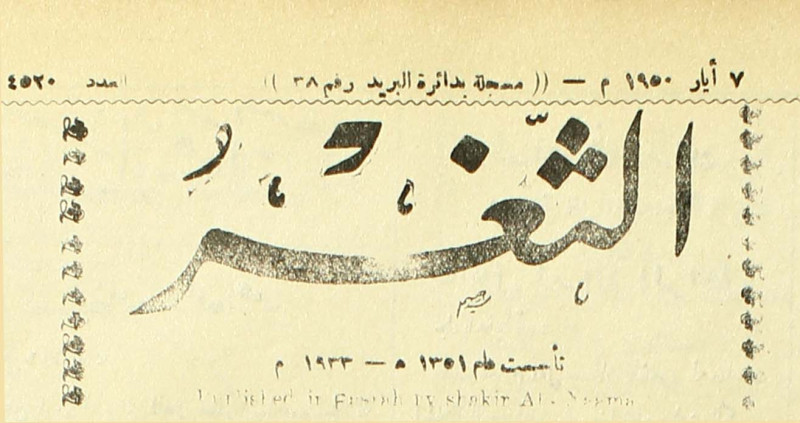 ٧ أيار ١٩٥٠ م — (( مسجلة بدائرة البريد رقم ٣٨ )) العدد ٤٥٢٠
الثّغرُ
تأسست عام ١٣٥١ ه — ١٩٣٣ م
Published in Basrah by Shakir Al-